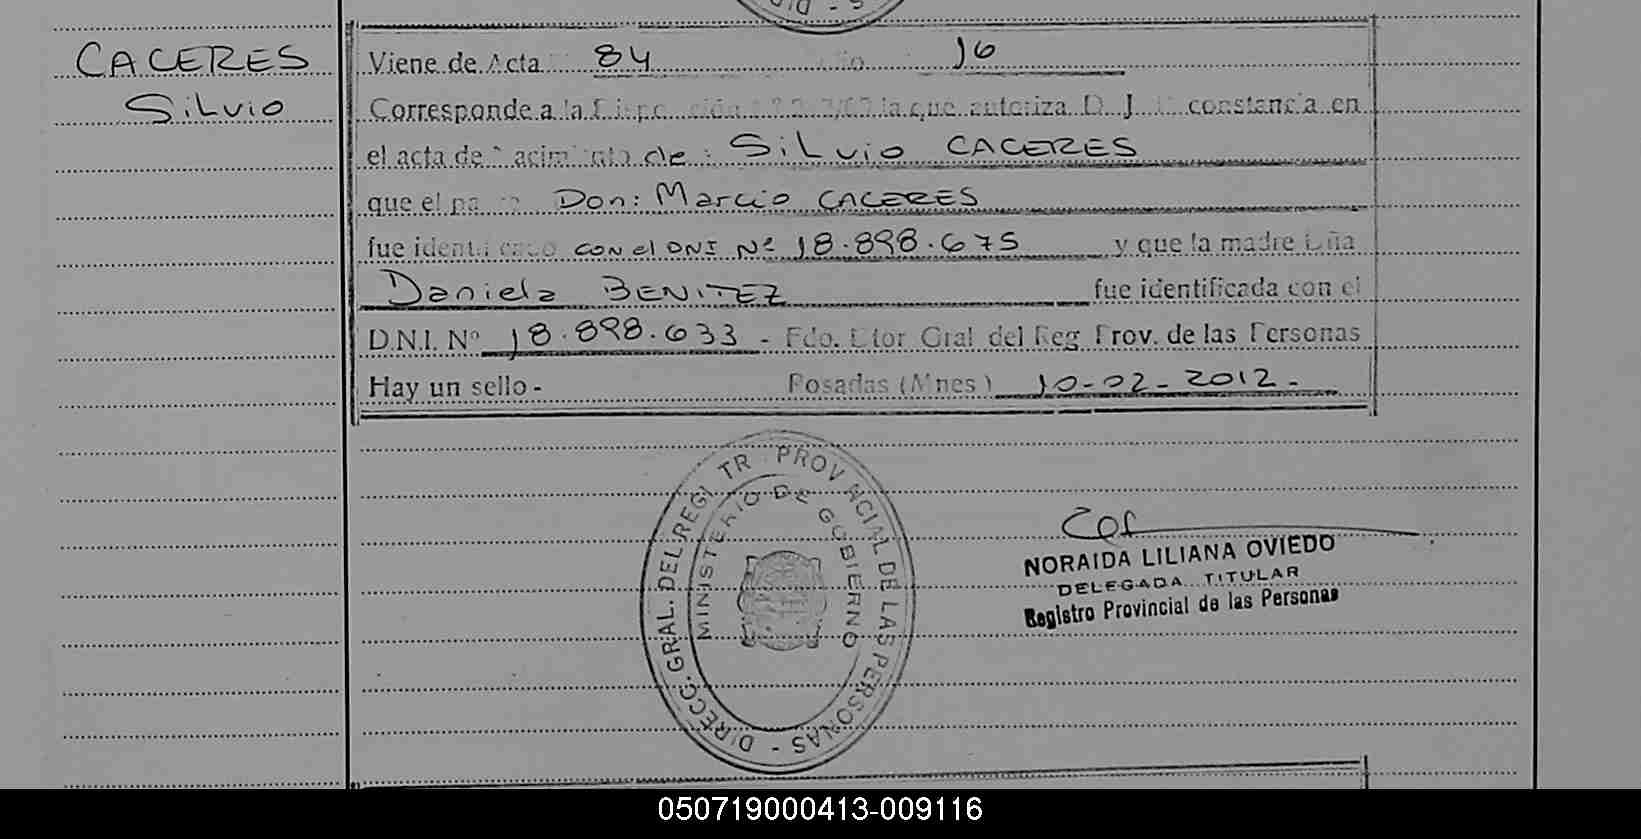 CACERES
Silvio
Viene de Acta 84 16
Corresponde a la la que autoriza D. J. constancia en
el acta de Nacimiento de: Silvio CACERES
que el padre Don: Marcio CACERES
fue identificado con el DNI Nº 18.898.675 y que la madre Dña
Daniela BENITEZ fue identificada con el
D.N.I. Nº 18.898.633 - Fdo. Dtor Gral del Reg Prov. de las Personas
Hay un sello - Posadas (Mnes) 10-02-2012.-
DIRECC. GRAL. DEL REGISTR PROVINCIAL DE LAS PERSONAS -
MINISTERIO DE GOBIERNO
NORAIDA LILIANA OVIEDO
DELEGADA TITULAR
Registro Provincial de las Personas
050719000413-009116